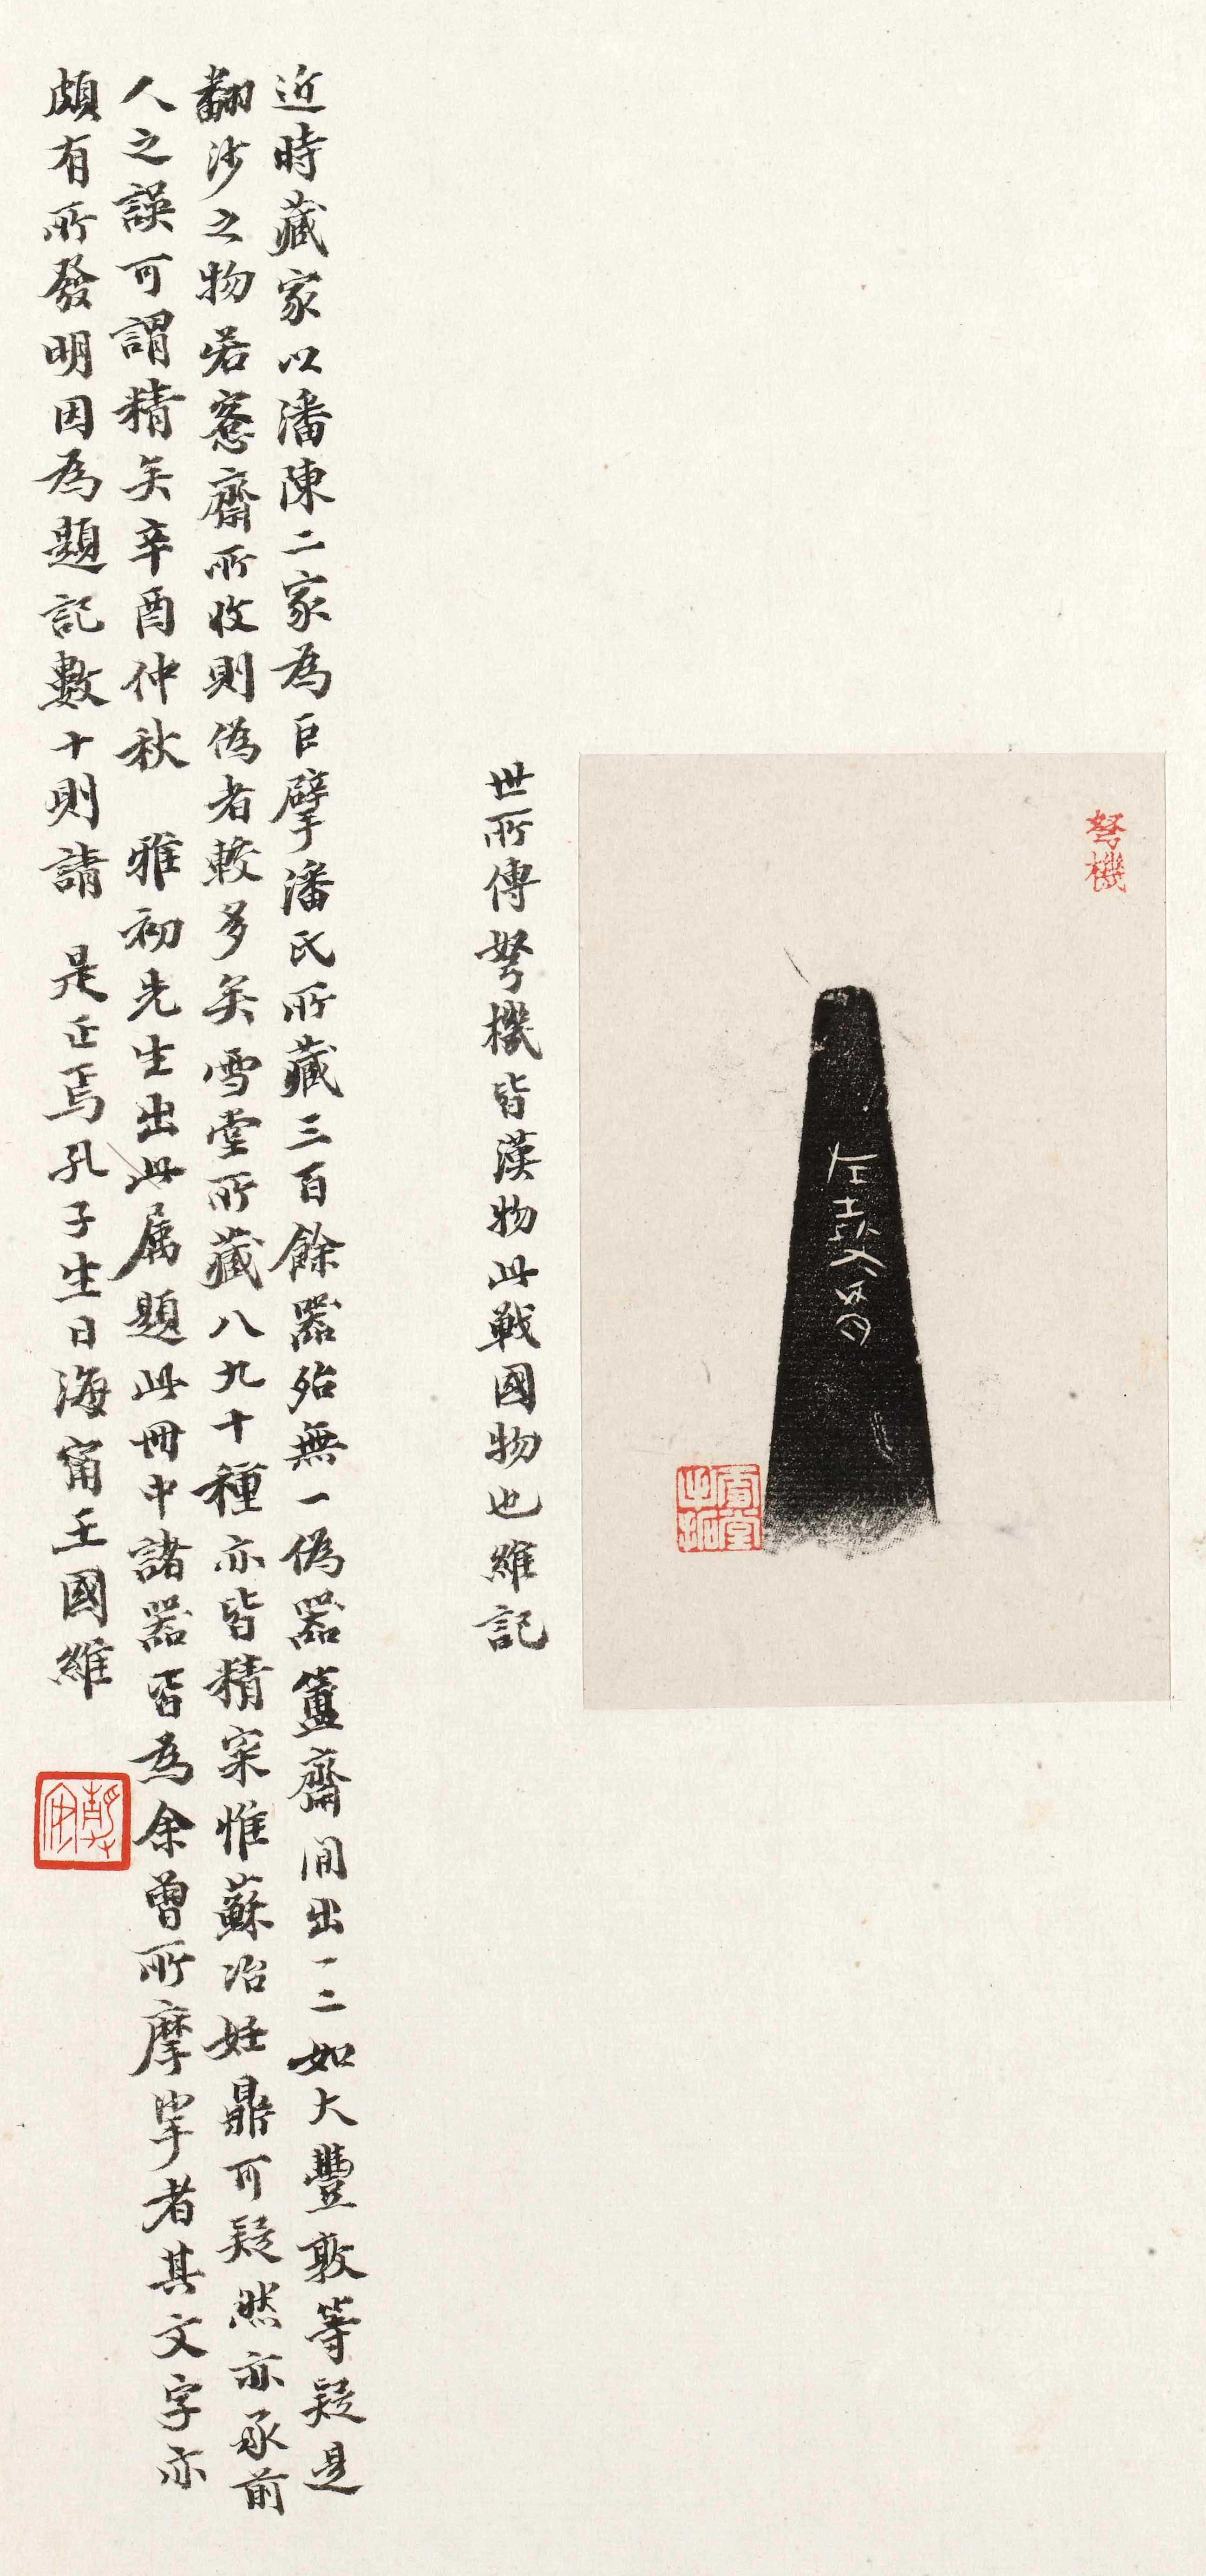 弩機
雪堂手拓
世所傳弩機皆漢物此戰國物也維記
近時藏家以潘陳二家為巨擘潘氏所藏三百餘器殆無一偽器簠齋間出一二如大豐敦等疑是
翻沙之物若愙齋所收則偽者較多矣雪堂所藏八九十種亦皆精寀惟蘇冶妊鼎可疑然亦承前
人之誤可謂精矣辛酉仲秋 雅初先生出此属題此冊中諸器皆為余曾所摩挲者其文字亦
頗有所發明因為題記數十則請 是正焉孔子生日海甯王國維
靜安